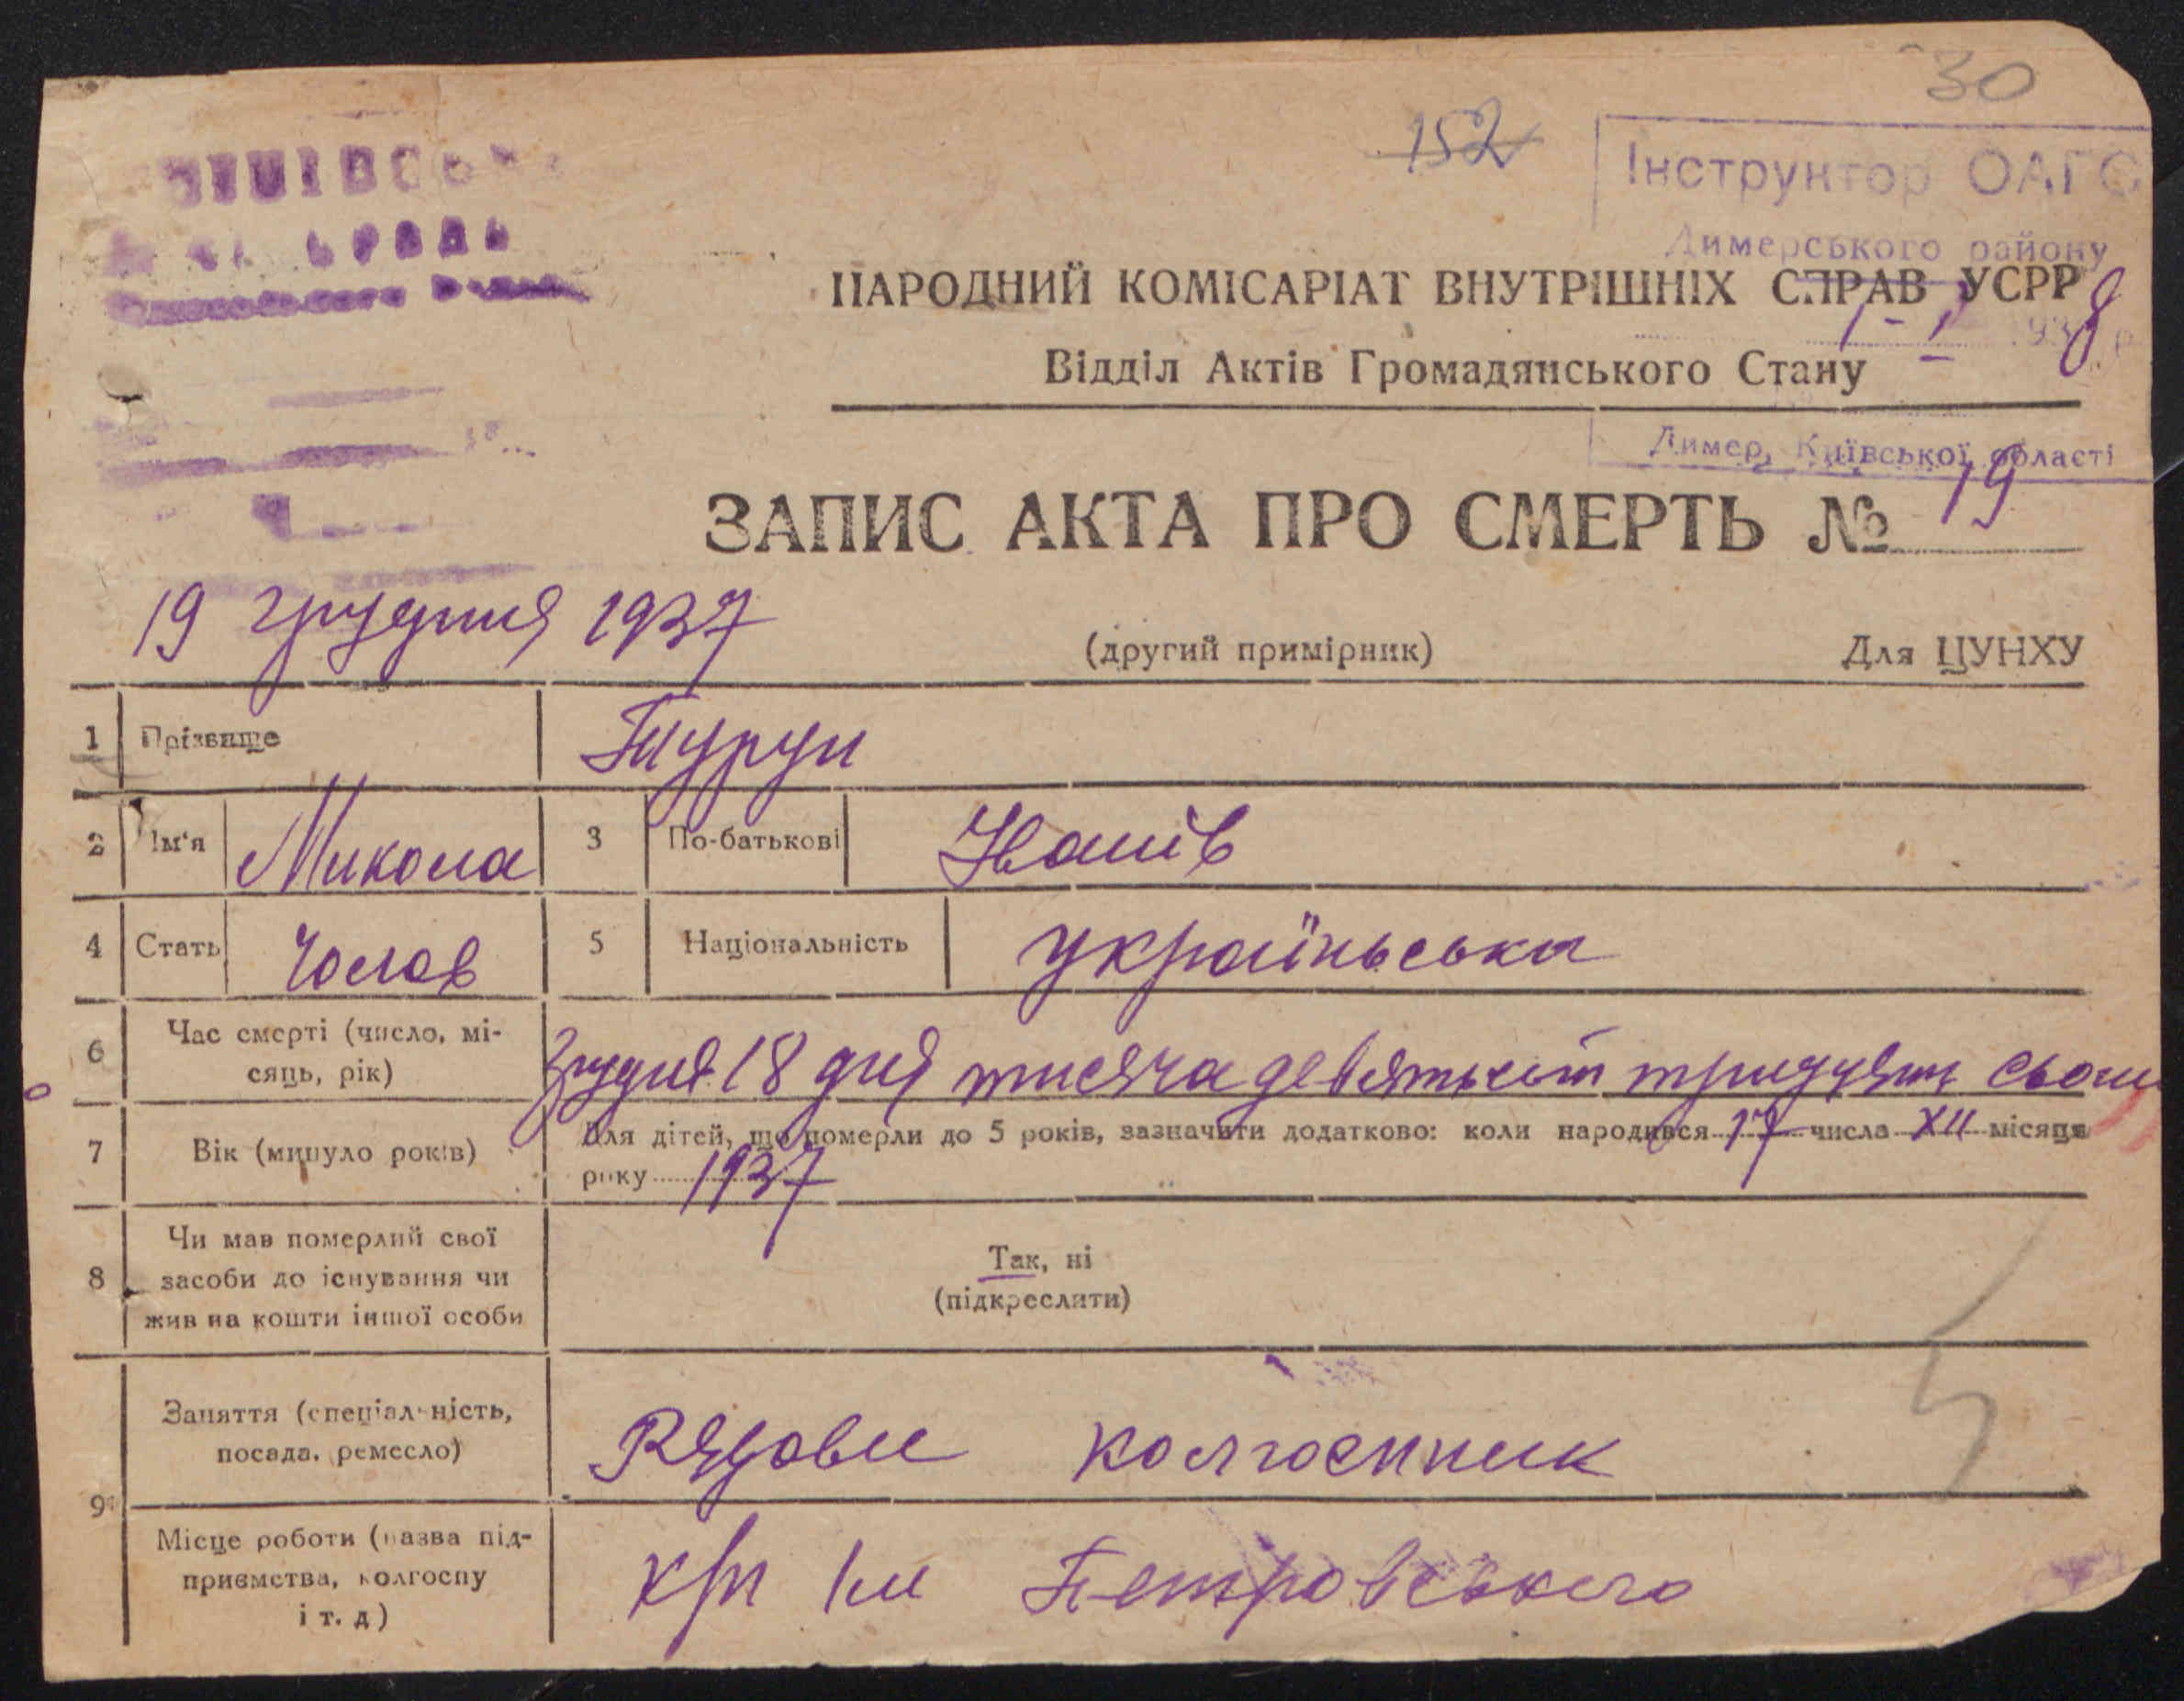 30
152
Інструктор ОАГС
Димерського району
НАРОДНИЙ КОМІСАРІАТ ВНУТРІШНІХ СПРАВ УСРР
1-I 1938 р
Відділ Актів Громадянського Стану
Димер, Київської області
ЗАПИС АКТА ПРО СМЕРТЬ № 19
19 грудня 1937
(другий примірник) Для ЦУНХУ
1 Прізвище Турун
2 Ім'я Микола 3 По-батькові Іванів
4 Стать Чолов 5 Національність українська
6 Час смерті (число, мі-
сяць, рік) Грудня 18 дня тисяча девятьсот тридцять сьом
7 Вік (минуло років) Для дітей, що померли до 5 років, зазначити додатково: коли народився 17 числа XII місяця
року 1937
8 Чи мав померлий свої
засоби до існування чи
жив на кошти іншої особи
Так, ні
(підкреслити)
9 Заняття (спеціальність,
посада, ремесло) Рядови колгоспник
Місце роботи (назва під-
приємства, колгоспу
і т. д) к/г Ім Петровського